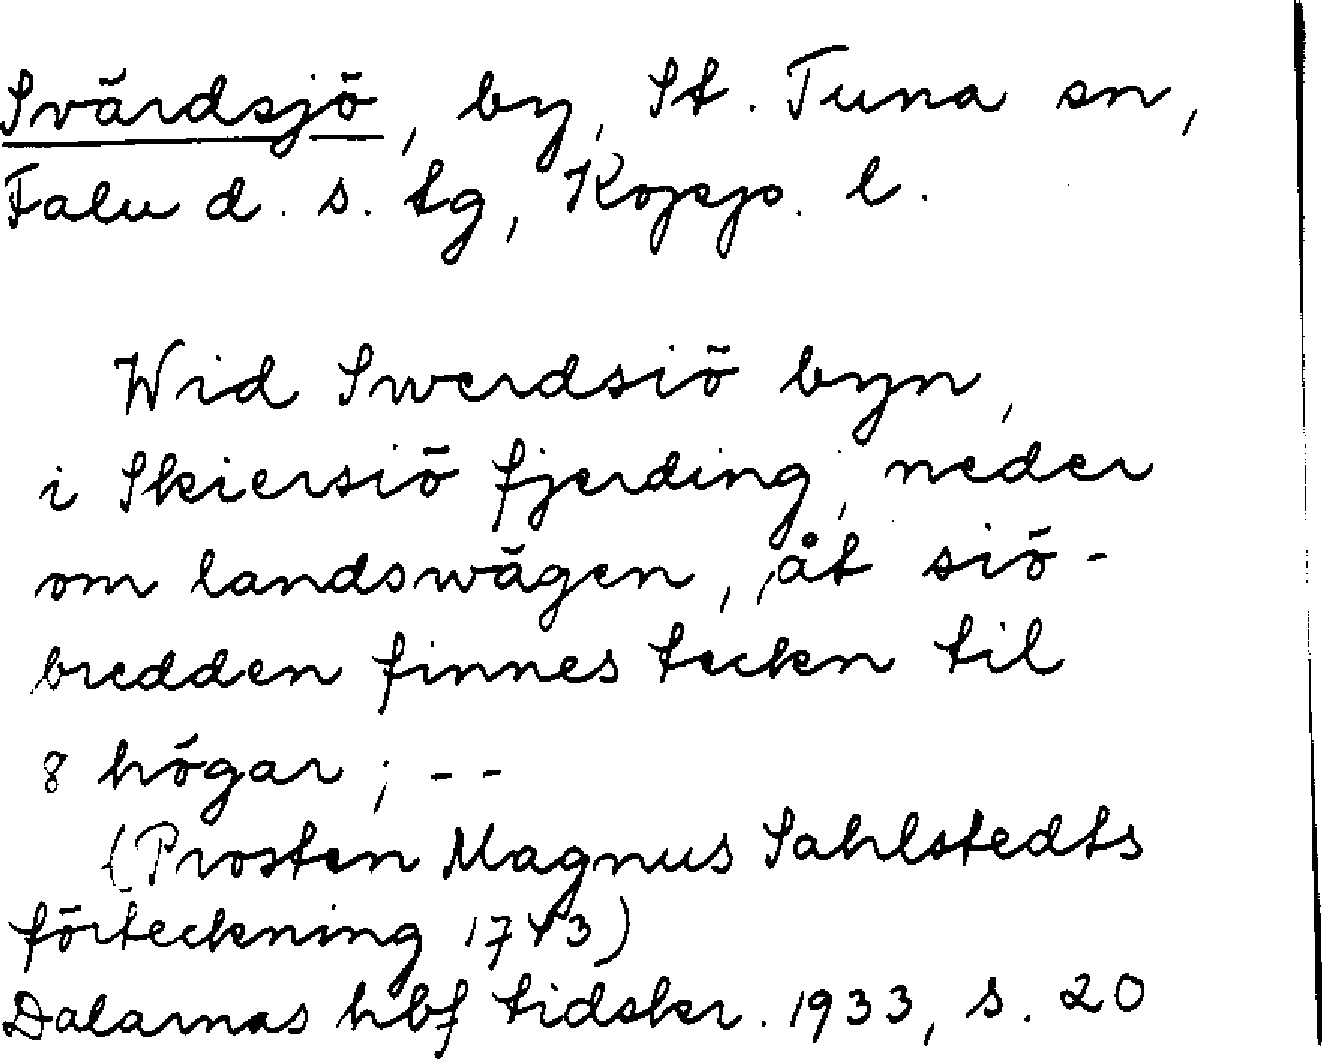 Svärdsjö, by, St. Tuna sn,
Falu d. s. tg, Kopp. l.
Wid Swerdsiö byn,
i Skiersiö fjerding, neder
om landswägen, åt siö-
bredden finnes tecken til
8 högar; --
(Prosten Magnus Sahlstedts
förteckning 1743)
Dalarnas hbf tidskr. 1933, s. 20